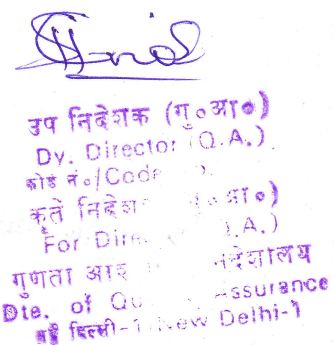 उप निदेशक (गु०आ०)
Dy. Director (Q.A.)
कोड नं०/Code
कृते निदेश आ०)
For Dire .A.)
गुणता आश देशालय
Dte. of Qu ssurance
नई दिल्ली-1 New Delhi-1